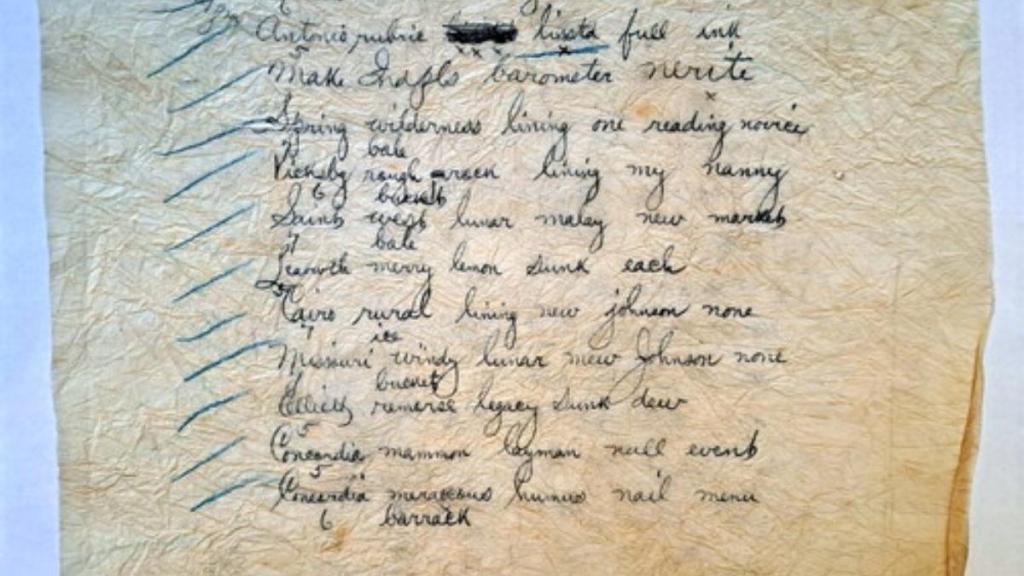 Antonio rubric lissta full ink
Make Indpls barometer nerite
Spring wilderness lining one reading novice
bale
Vicksbg rough rack lining my nanny
6 bucket
Saints west lunar malay new market
bale
Leavwth merry lemon sunk each
Cairo rural lining new johnson none
7 ice
Missouri windy lunar mew Johnson none
bucket
Elliott remorse legacy sunk dew
5
Concordia mammon layman null event
5
Concordia meraccous humus nail menu
6 barrack